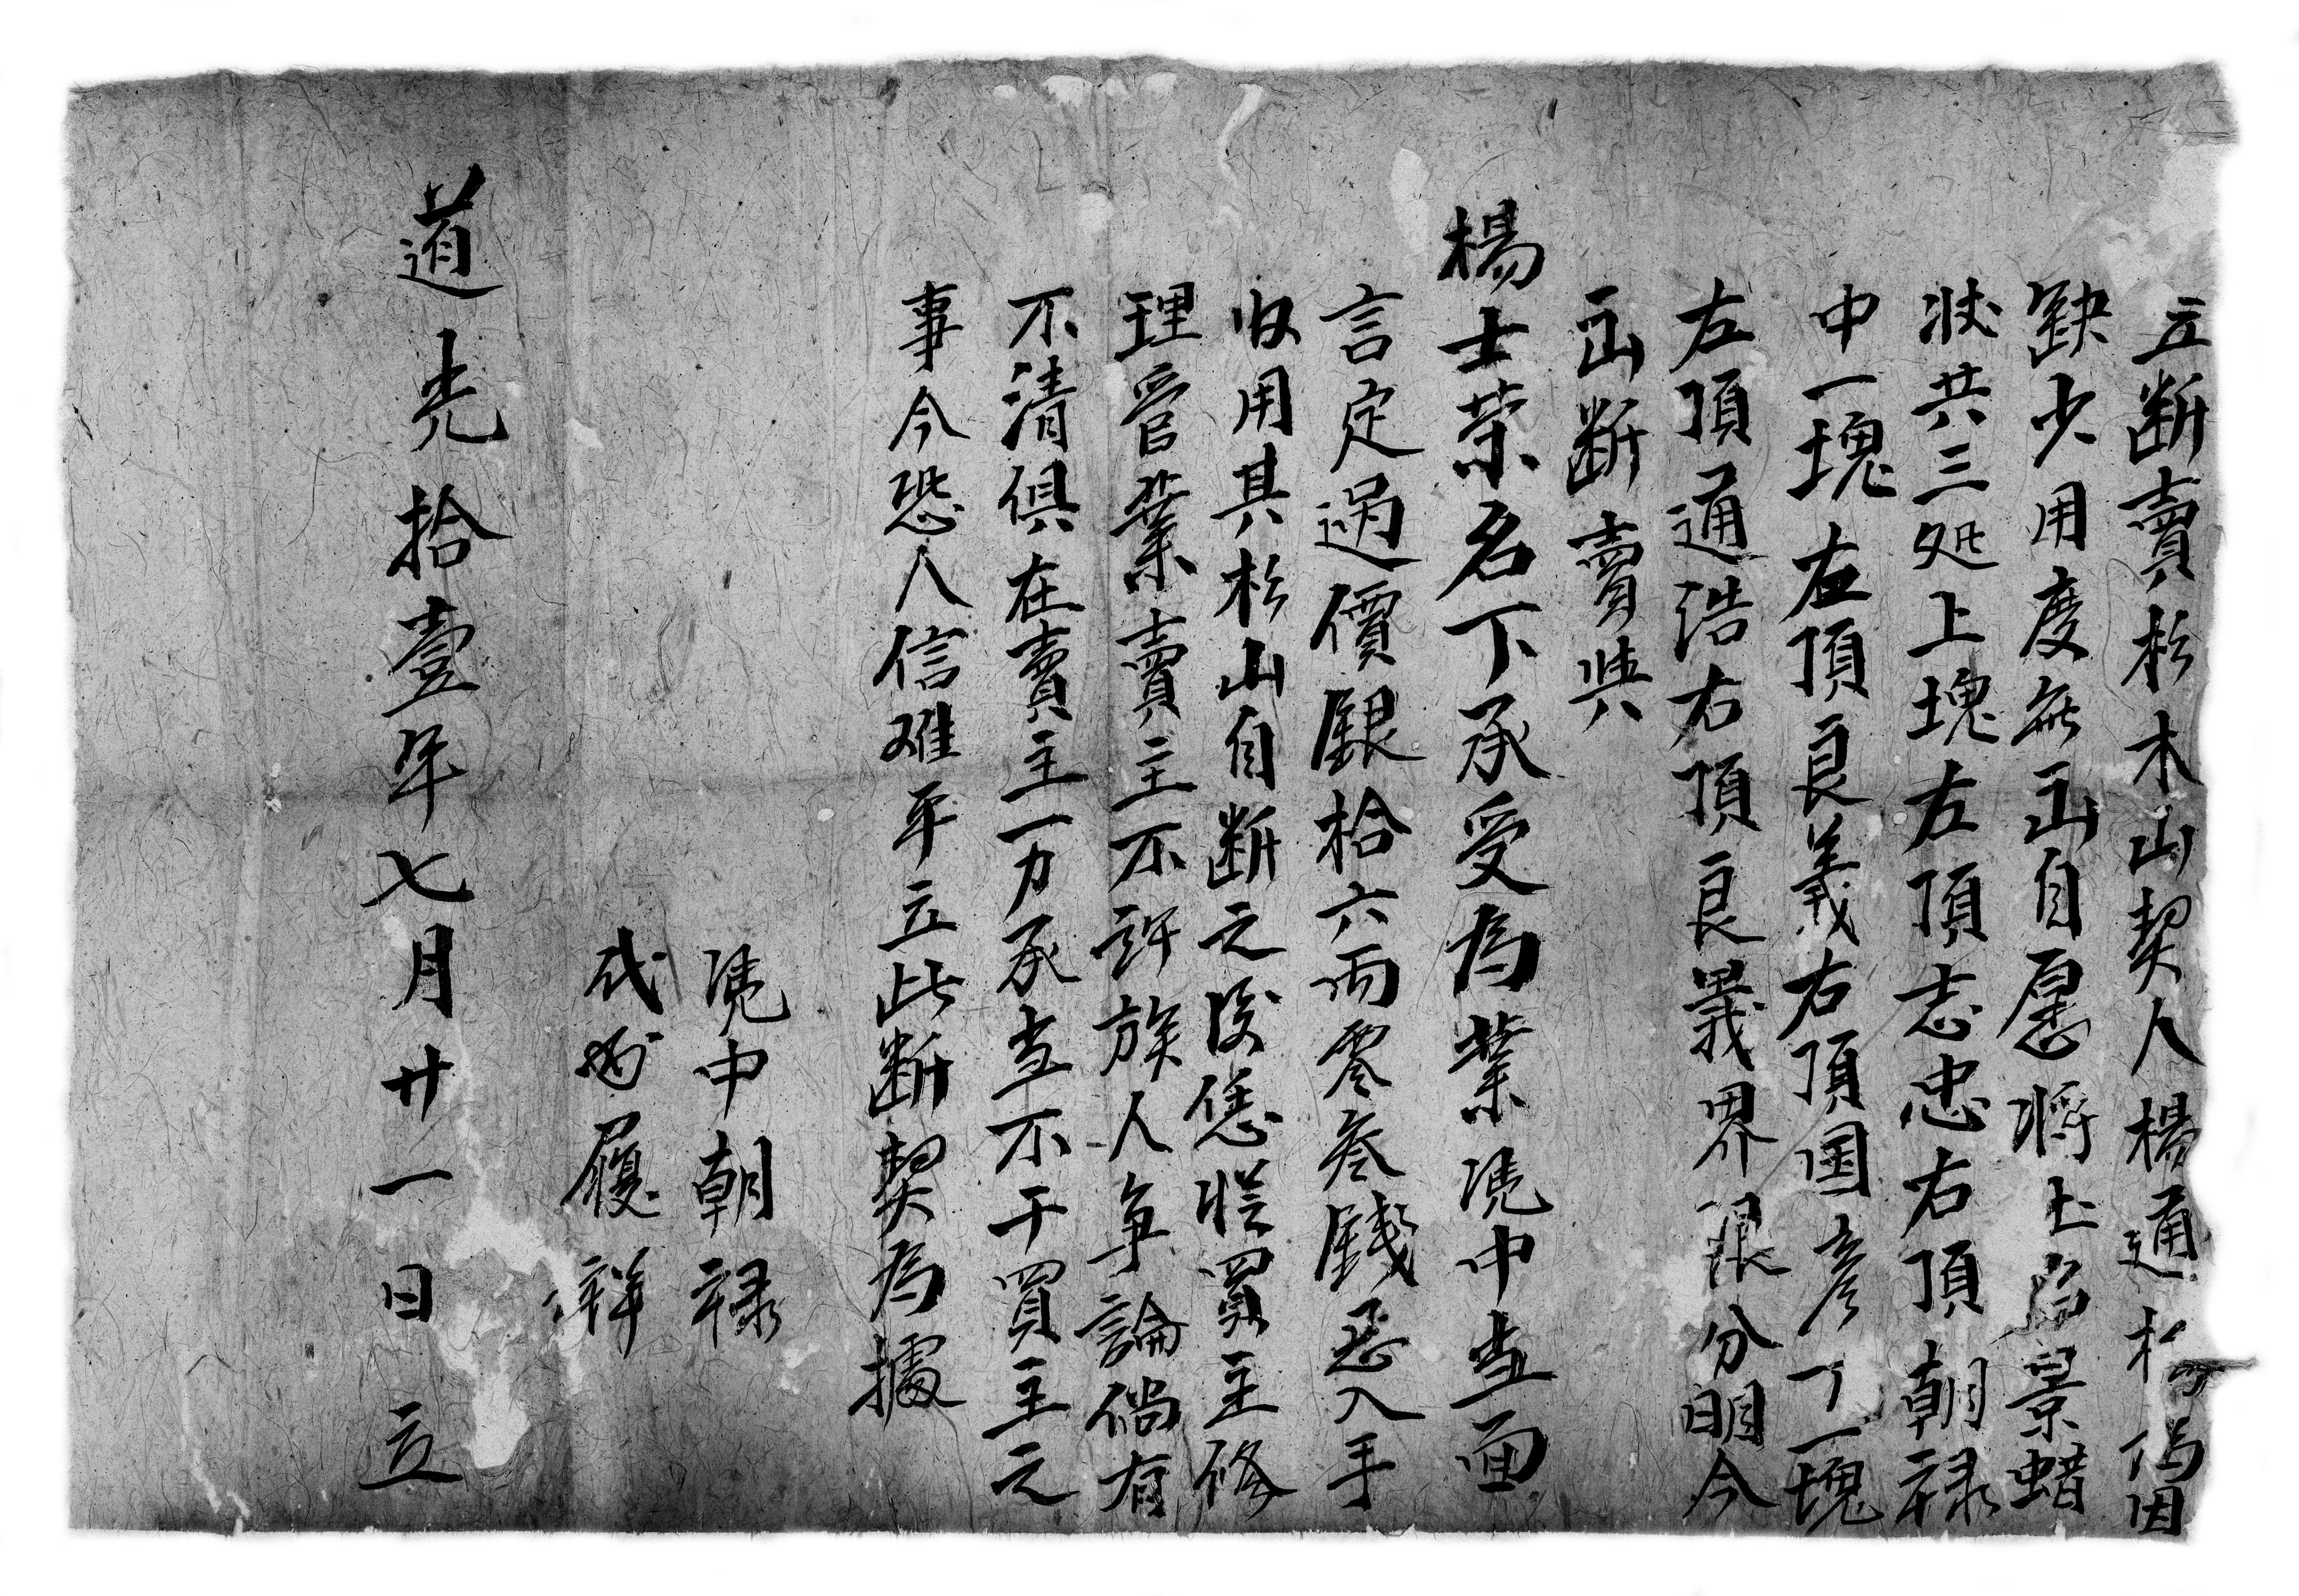 立断賣杉木山契人楊通杉為因
缺少用度無出自愿将土名景蜡
狀共三処上塊左頂志忠右頂朝禄
中一塊左頂良義右頂国彦下一塊
左頂通浩右頂良義界限分明今
出断賣與
楊士荣名下承受為業凴中当面
言定過價銀拾六両零叁錢忍入手
收用其杉山自断之後恁從買主修
理管業賣主不許族人争論倘有
不清俱在賣主一力承当不干買主之
事今恐人信难平立此断契為據
凴中朝禄
代必履祥
道光拾壹年七月廿一日立